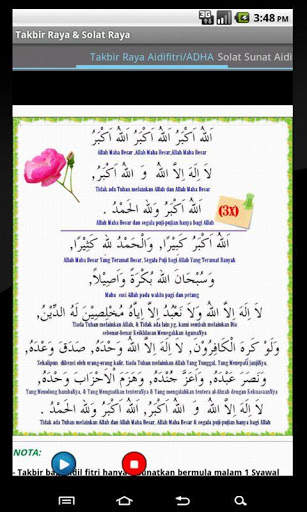 3:48 PM
Takbir Raya & Solat Raya
Takbir Raya Aidifitri/ADHA Solat Sunat Aidi
اَللهُ اَكْبَرُ اَللهُ اَكْبَرُ اَللهُ اَكْبَرُ
Allah Maha Besar ,Allah Maha Besar,Allah Maha Besar
لاَ إِلَهَ إِلاَّ اللهُ وَ اللهُ اَكْبَرُ,
Tidak ada Tuhan melainkan Allah dan Allah Maha Besar
اَللهُ اَكْبَرُ وَللهِ الْحَمْدُ . (3x)
Allah Maha Besar dan segala puji-pujian hanya bagi Allah
اَللهُ اَكْبَرُ كَبِيْرًا, وَالْحَمْدُ للهِ كَثِيْرًا,
Allah Maha Besar Yang Teramat Besar, Segala Puji bagi Allah Yang Teramat Banyak
وَسُبْحَانَ اللهِ بُكْرَةً وَاَصِيْلاً,
Maha suci Allah pada waktu pagi dan petang
لاَ إِلَهَ إِلاَّ اللهُ وَلاَ نَعْبُدُ إِلاَّ إِيَّاهُ مُخْلِصِيْنَ لَهُ الدِّيْنَ,
Tiada Tuhan melainkan Allah, & Tidak ada lain yg. kami sembah melainkan Dia
sebenar-benar Keikhlasan Menegakkan AgamaNya
وَلَوْ كَرِهَ الْكَافِرُوْنَ, لاَ إِلَهَ إِلاَّ اللهُ وَحْدَهُ, صَدَقَ وَعْدَهُ,
Sekalipun dibenci oleh orang-orang kafir, tiada Tuhan melainkan Allah Yang Tunggal, Yang Menepati janjiNya,
وَنَصَرَ عَبْدَهُ, وَاَعَزَّ جُنْدَهُ, وَهَزَمَ الْاَحْزَابَ وَحْدَهُ,
Yang Menolong hambaNya, & Yang Menguatkan tenteraNya & Yang mengalahkan tentera al-Ahzab dengan KekuasaanNya
لاَ إِلَهَ إِلاَّ اللهُ وَ اللهُ اَكْبَرُ, اَللهُ اَكْبَرُ وَللهِ الْحَمْدُ .
Tidak ada Tuhan melainkan Allah dan Allah Maha Besar, Allah Maha Besar & segala puji-pujian hanya bagi Allah
NOTA:
- Takbir ba fitri hanya unatkan bermula malam 1 Syawal